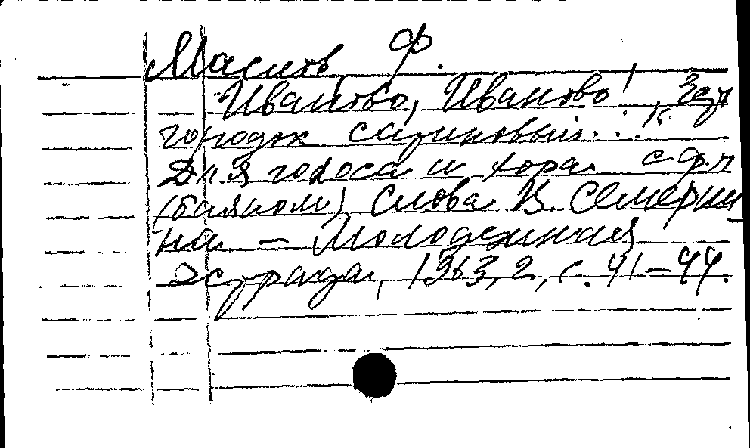 Маслов Ф.
Иваново, Иваново!,
городок сатиновый..."
Для голоса и хора с ф.п
(баяном) Слова В. Семерни
на – Молодежная
эстрада, 1963, 2, с. 41–44.